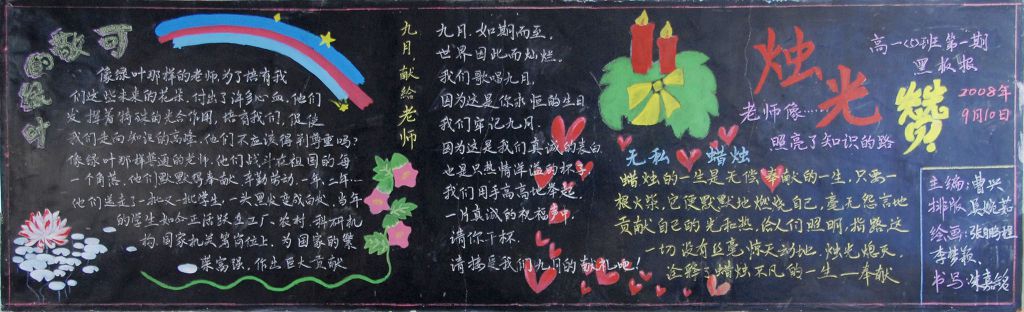 可敬的绿叶
像绿叶那样的老师,为了培育我
们这些未来的花朵,付出了许多心血,他们
发挥着特殊的光合作用,培育我们,促使
我们走向知识的高峰,他们不应该得到尊重吗?
像绿叶那样普通的老师,他们战斗在祖国的每
一个角落,他们默默的奉献,辛勤劳动,一年,二年…
他们送走了一批又一批学生,一头黑发变成白发,当年
的学生如今正活跃在工厂、农村、科研机
构、国家机关等岗位上,为国家的繁
荣富强,作出巨大贡献
九月,献给老师
九月,如期而至,
世界因此而灿烂,
我们歌唱九月,
因为这是你永恒的生日
我们牢记九月,
因为这是我们真诚的表白
也是只热情洋溢的杯子
我们用手高高地举起,
一片真诚的祝福声中
请你干杯,
请接受我们九月的献礼吧!
烛光
赞
高一(5)班第一期
黑板报
2008年
9月10日
老师像……
照亮了知识的路
无私 蜡烛
蜡烛的一生是无偿奉献的一生,只要一
根火柴,它便默默地燃烧自己,毫无怨言地
贡献自己的光和热,给人们照明,指路,这
一切没有丝毫惊天动地,烛光熄灭,
诠释了蜡烛不凡的一生—奉献
主编:曹兴
排版:吴婉茹
绘画:张鹏程
李梦薇
书写:朱嘉铭